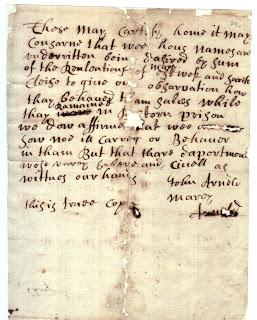 These may cartify home it may
Consarne that wee hous names are
underritten bein desired by sum
of the Reulations of mary Bswet and Sarah
Cloise to give our observation how
thay behaved tham salves while
thay Remained in Ips born prison
we dow affirme that wee
Sow noe ill Carreg or Behavor
in tham But that thare daportmou
wose varey Sober and Civell as
witnes our hands
John Arnold
Marey
Arnold
this is trwe Copa